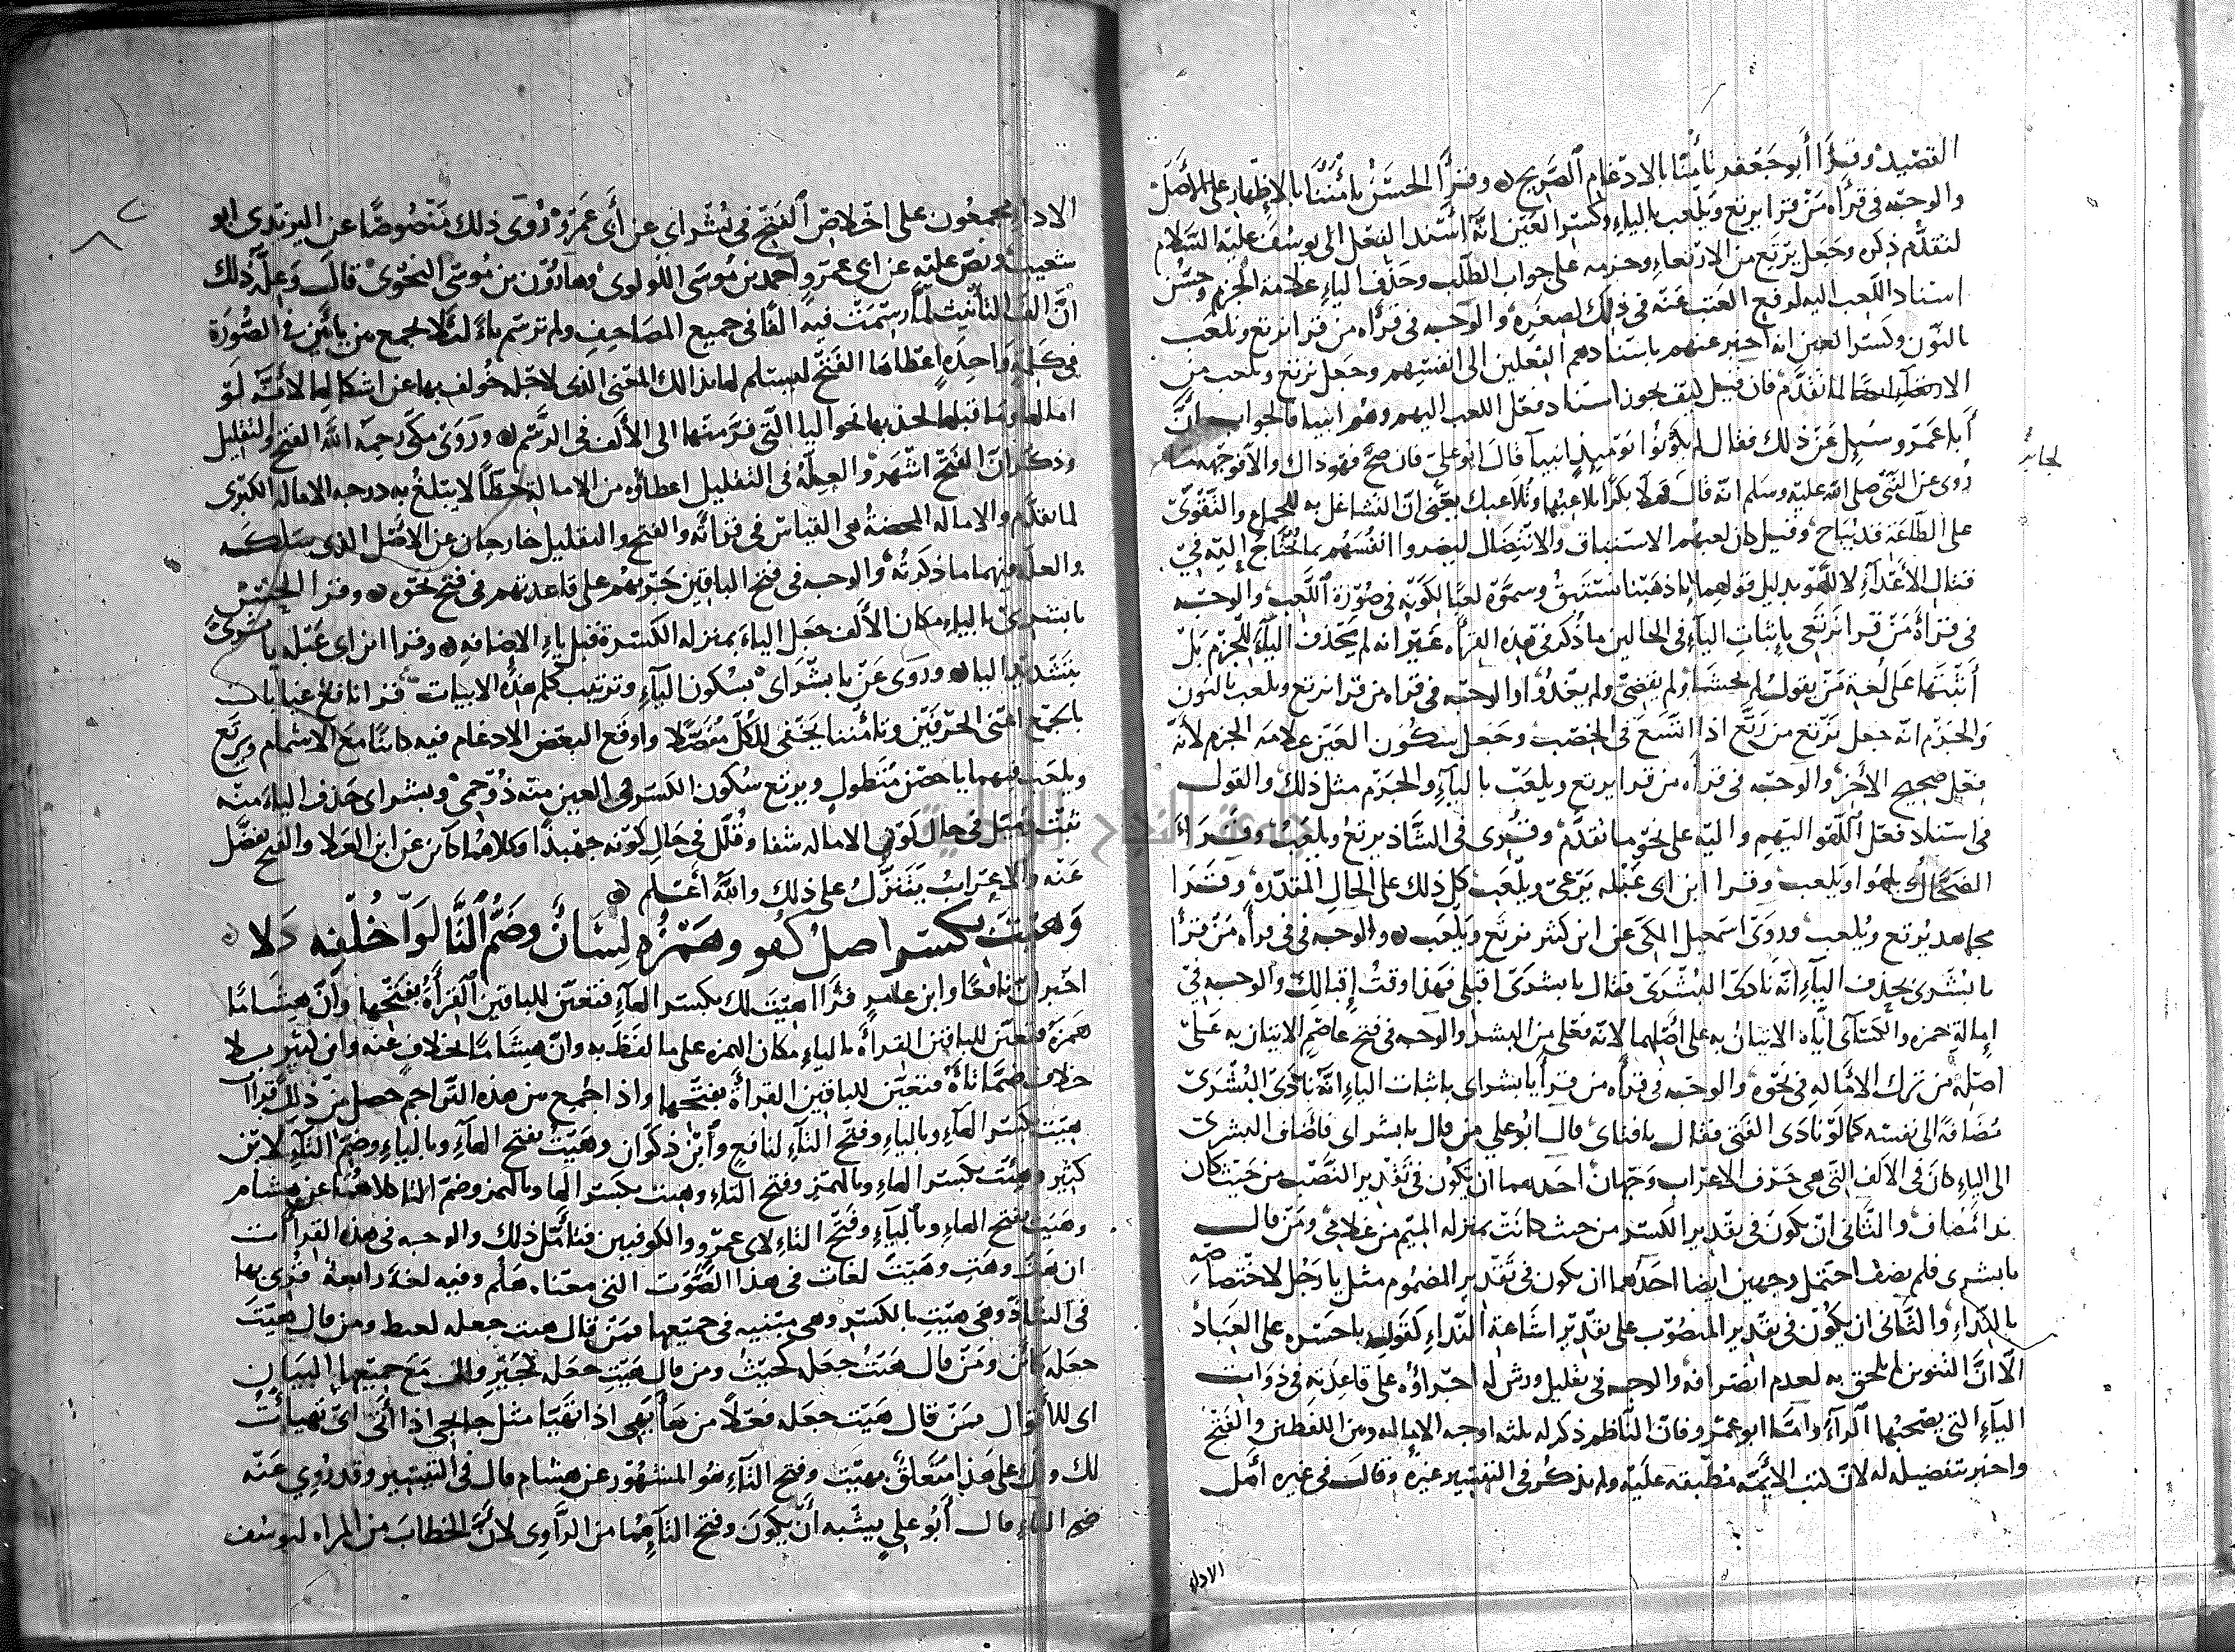 القصيد وقرا أبو جعفر تأمنا بالادغام الصريح وقرا الحسن تأمننا بالاظهار على الأصل
والوجه في قراه من قرا يرتع ويلعب بالياء وكسر العين انه اسند الفعل الى يوسف عليه السلام
لتقدم ذكره وجعل يرتع من الارتعاء وجزمه على جواب الطلب وحذف الياء علامة الجزم وحسن
اسناد اللعب اليه لوقع العتب عنه في ذلك لصغره والوجه في قراه من قرا نرتع ونلعب
بالنون وكسر العين انه اخبر عنهم باسنادهم الفعلين الى انفسهم وجعل نرتع ونلعب من
الارتعاء لما تقدم فان قيل كيف يجوز اسناد فعل اللعب اليهم وهم انبيا فالجواب ان
أبا عمرو سيل عن ذلك فقال لم يكونوا يوميذ انبيآ قال ابو علي فان صح فهو ذاك والا فوجهه ما
روى عن النبي صلى الله عليه وسلم انه قال فهلا بكرا تلاعبها وتلاعبك يعني ان التشاغل به للجماع والتقوى
على الطاعة قد يباح وقيل كان لعبهم الاستباق والانتضال ليضروا انفسهم بما يحتاج إليه في
قتال الأعدآء لا للهو بدليل قولهم إنا ذهبنا نستبق وسموه لعبا لكونه في صورة اللعب والوجه
في قراة من قرا نرتعي بإثبات اليآء في الحالين ما ذكر في هذه القراه غير انه لم يحذف اليآء للجزم بل
أثبتها على لغة من يقول لم يخشى ولم يقضي ولم يغدوا والوجه في قراه من قرا نرتع ونلعب بالنون
والجزم انه جعل نرتع من رتع اذا اتسع في الخصب وجعل سكون العين علامه الجزم لأنه
فعل صحيح الأخر والوجه في قراه من قرا يرتع ويلعب باليآء والجزم مثل ذلك والقول
في اسناد فعل اللهو اليهم واليه على نحو ما تقدم وقرى في الشاذ يرتع ويلعب وقرا
الضحاك يلهوا ويلعب وقرا ابن ابي عبله يرعى ويلعب كل ذلك على الحال المقدره وقرا
مجاهد يرتع ويلعب وروى اسمعيل المكي عن ابن كثير نرتع ويلعب والوجه في قراه من قرا
يا بشرى بحذف اليآء انه نادى البشرى فقال يا بشرى اقبلي فهذا وقت إقبالك والوجه في
إمالة حمزه والكسآئي اياه الاتيان به على أصلهما لانه فعلى من البشر والوجه في فتح عاصم الاتيان به على
اصله من ترك الاماله في نحوه والوجه في قراه من قرأ يا بشراى باثبات الياء انه نادى البشرى
مضافة الى نفسه كما لو نادى الفتى فقال يا فتاى قال ابو علي من قال يا بشراى فأضاف البشرى
الى الياء كان في الالف التي هي حرف الاعراب وجهان احدهما ان تكون في تقدير النصب من حيث كان
ندا مضاف والثاني ان يكون في تقدير الكسر من حيث كانت بمنزله الميم من غلامي ومن قال
يا بشرى فلم يضف احتمل وجهين ايضا احدهما ان يكون في تقدير المضموم مثل يا رجل لاختصاصه
بالندآء والثاني ان يكون في تقدير المنصوب على تقدير اشاعة الندآء كقوله يا حسره على العباد
الا ان التنوين لم يلحق به لعدم انصرافه والوجه في تقليل ورش له اجراؤه على قاعدته في ذوات
اليآء التي يصحبها الرآء واما ابو عمرو فان الناظم ذكر له ثلثه اوجه الاماله وبين اللفظين والفتح
واخبر بتفضيله له لان كتب الأيمة مطبقه عليه ولم يذكر في التيسير غيره وقال في غيره أهل
الاداء
الاداء مجمعون على اخلاص الفتح في بشراي عن أبي عمرو وروى ذلك منصوصا عن اليزيدي ابو
شعيب ونص عليه عن ابي عمرو احمد بن موسى اللولوى وهارون بن موسى النحوى قال وعله ذلك
ان الف التأنيث لما رسمت فيه الفا في جميع المصاحف ولم ترسم ياء لئلا يجمع بين يائين في الصورة
في كلمة واحدة اعطاها الفتح ليسلم لها بذالك المعنى الذي لاجله خولف بها عن اشكالها لأنه لو
امالها وما قبلها لحذبها نحو اليا التي فر منها الى الألف في الرسم وروى مكي رحمه الله الفتح والتقليل
وذكر ان الفتح اشهر والعله في التقليل اعطاؤه من الامالة حظا لا يبلغ به درجه الاماله الكبرى
لما تقدم والاماله المحضة هي القياس في قراته والفتح والتقليل خارجان عن الاصل الذي يسلكه
والعله فيهما ما ذكرته والوجه في فتح الباقين جريهم على قاعدتهم في فتح نحوه وقرا الحسن
يا بشرى بالياء مكان الألف جعل الياء بمنزله الكسرة قبل ياء الاضافه وقرا ابن ابي عبله يا بشرى
بتشديد اليا وروى عن يا بشراى بسكون اليآء وترتيب كلم هذه الابيات قرا نافع غيابات
بالجمع اعني الحرفين وتأمننا يخفى للكل مفصلا واوقع البعض الادغام فيه كاينا مع الاشمام ويرتع
ويلعب فيهما يا حصن تطول ويرتع سكون الكسر في العين منه ذو حمى وبشراى حذف الياء منه
ثبت وميل في حال كون الاماله شفا وقلل في حال كونه جهبذا وكلاهما كاين عن ابن العلا والفتح تفضل
عنه والاعراب يتنزل على ذلك والله أعلم
وهيت بكسر اصل كفو وهمزه لسان وضم التا لوا خلفه دلا
اخبر ان نافعا وابن عامر قرا هيت لك بكسر الهآء فتعين للباقين القراة بفتحها وان هشاما
همزه فتعين للباقين القراه بالياء مكان الهمزه على ما لفظ به وان هشاما بخلاف عنه وابن كثير بلا
خلاف ضما تاه فتعين للباقين القراة بفتحها واذا جمع بين هذه التراجم حصل من ذلك قراات
هيت بكسر الهآء وبالياء وفتح التآء لنافع وابن ذكوان وهيت بفتح الهآء وبالياء وضم التآء لابن
كثير وهئت بكسر الهاء وبالهمز وفتح التاء وهيت بكسر الها وبالهمز وضم التا كلاهما عن هشام
وهيت بفتح الهاء وباليآء وفتح التاء لابي عمرو والكوفيين فتأمل ذلك والوجه في هذه القراات
ان هيت وهيت وهيت لغات في هذا الصوت الذي معناه هلم وفيه لغة رابعة قرى بها
في الشاذ وهي هيت بالكسر وهي مبنيه في جميعها فمن قال هيت جعله لعيط ومن قال هيت
جعله كأين ومن قال هيت جعله كحيث ومن قال هيت جعله كجير والف مع جميعها البيان
اى لك أقول ومن قال هيت جعله فعلا من هآ يهى اذا تهيا مثل جا يجي اذا أتى اى تهيأت
لك ولك على هذا متعلق بهيت وفتح التآء هو المشهور عن هشام قال في التيسير وقد روي عنه
ضم التاء قال أبو علي يشبه ان يكون وفتح التآء وهما من الراوى لان الخطاب من المراه ليوسف